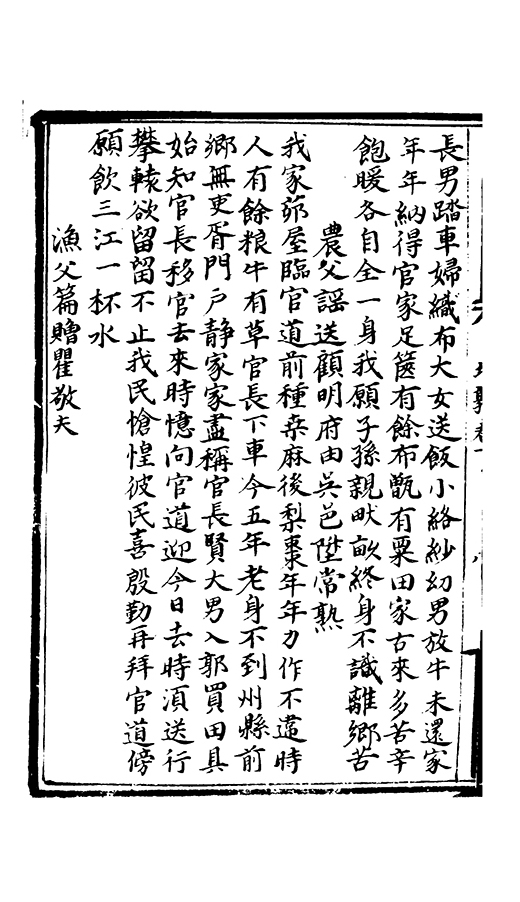 長男踏車婦織布大女送飯小絡紗幼男放牛未還家
年年納得官家足篋有餘布甔有粟田家古來多苦辛
飽暖各自全一身我願子孫親畎畝終身不識離鄉苦
農父謡送顧明府由吳邑陞常熟
我家茆屋臨官道前種桑麻後梨棗年年力作不違時
人有餘粮牛有草官長下車今五年老身不到州縣前
鄉無吏胥門戶靜家家盡稱官長賢大男入郭買田具
始知官長移官去來時憶向官道迎今日去時湏送行
攀轅欲留留不止我民愴惶彼民喜殷勤再拜官道傍
願飲三江一杯水
漁父篇贈瞿敬夫